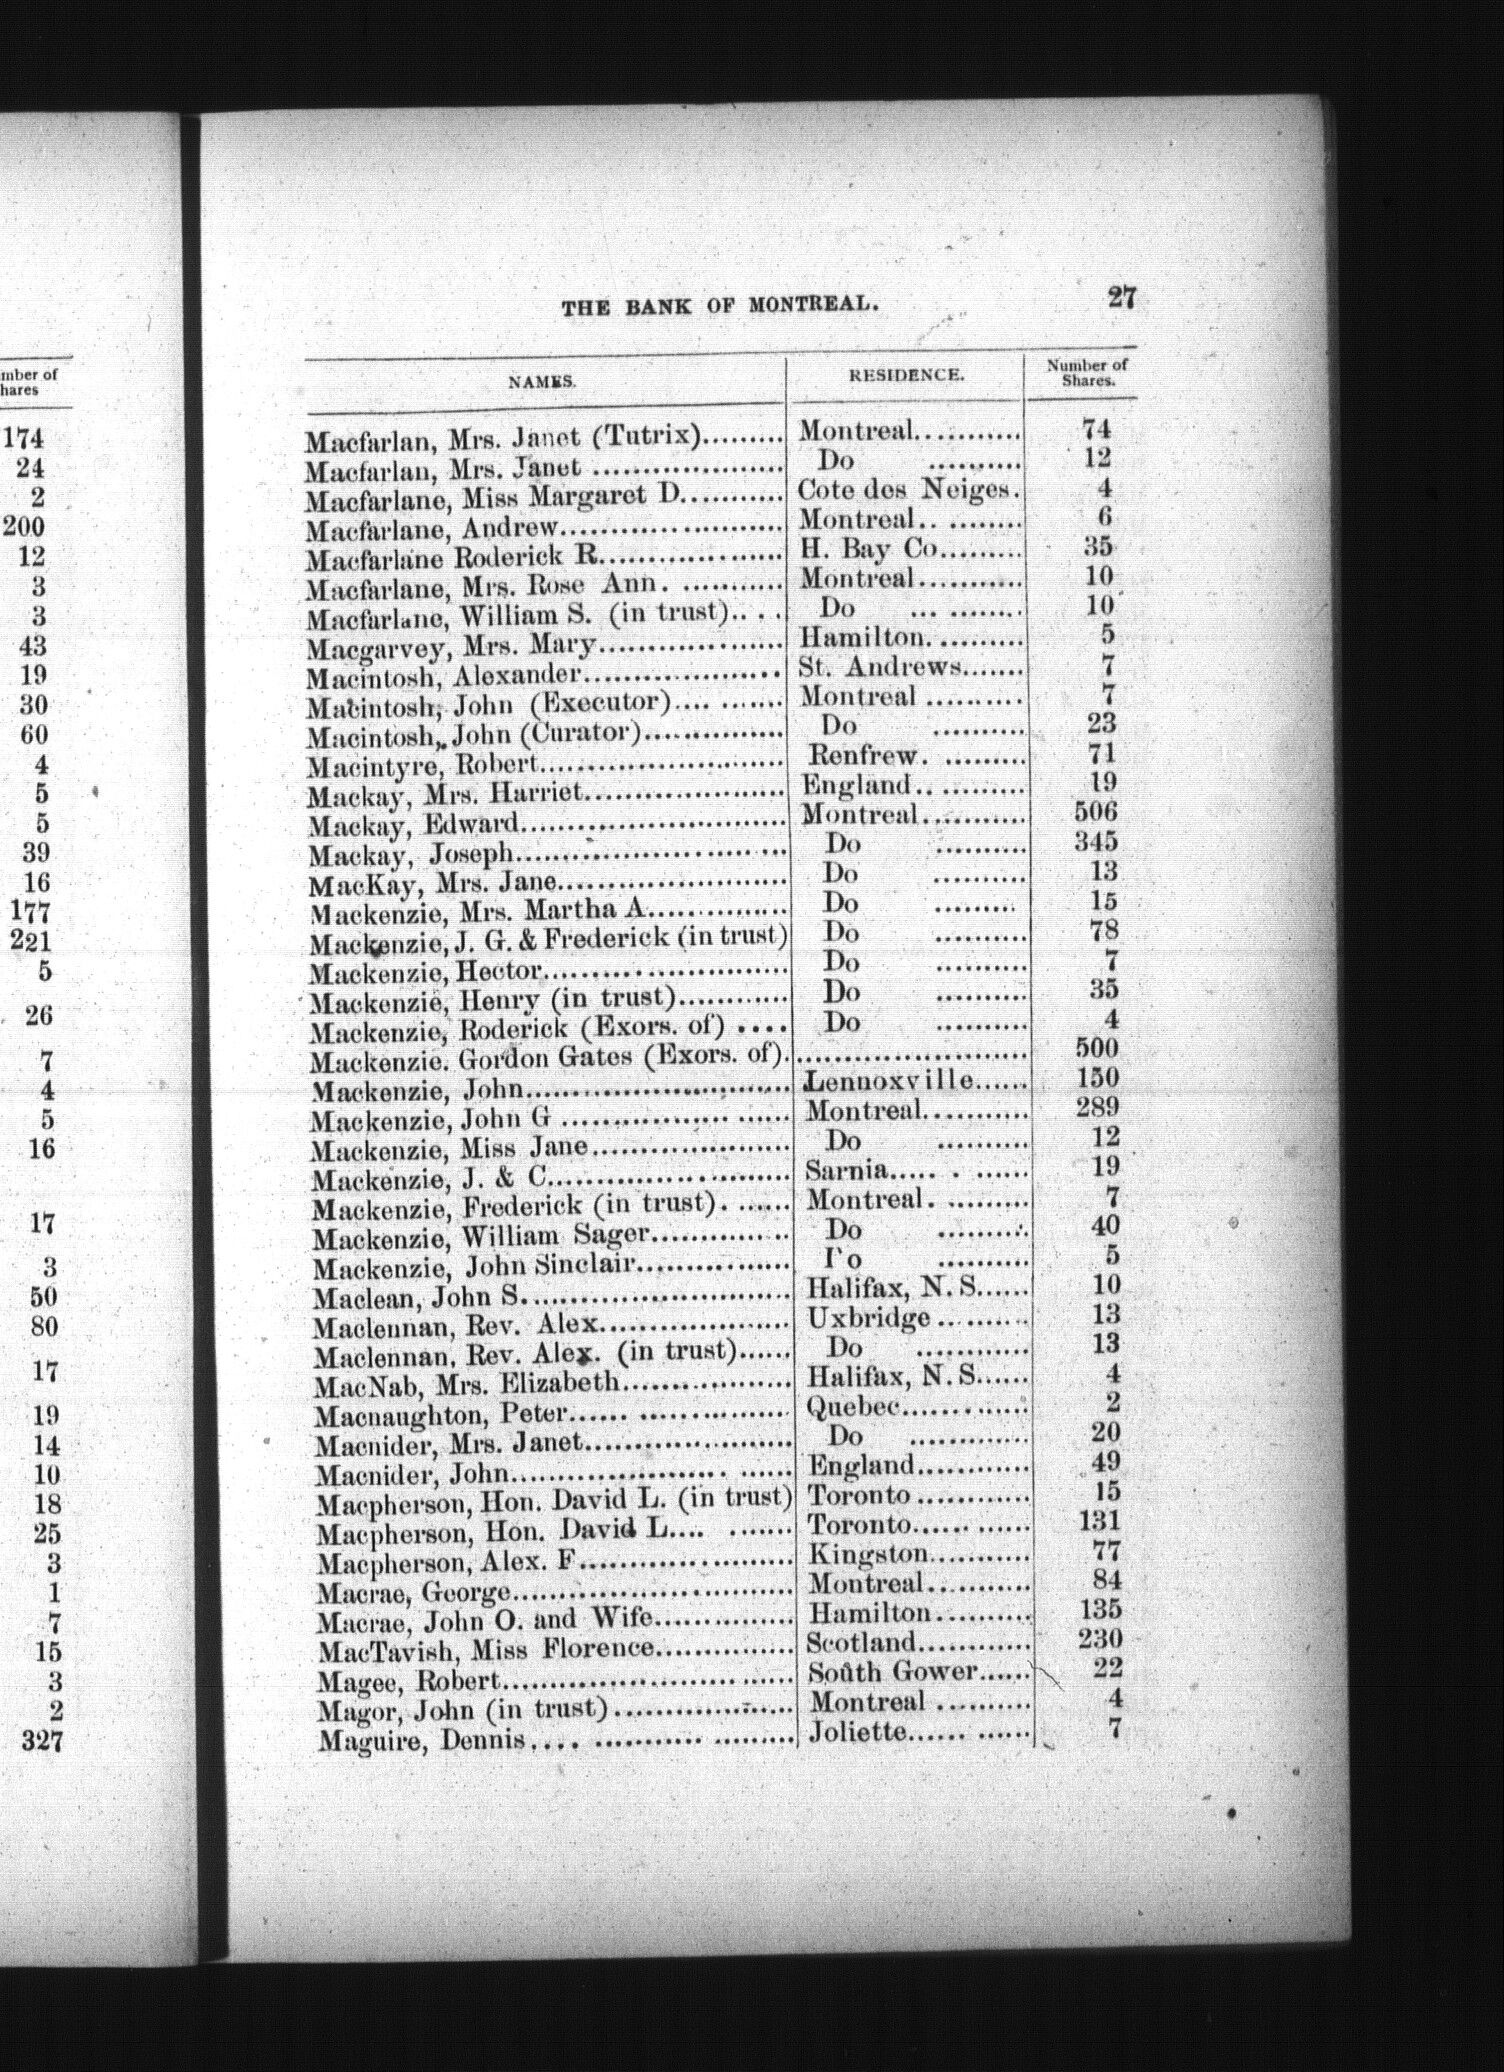 mber of
hares
174
24
2
200
12
3
3
43
19
30
60
4
5
5
39
16
177
221
5
26
7
4
5
16
17
3
50
80
17
19
14
10
18
25
3
1
7
15
3
2
327
THE BANK OF MONTREAL. 27
NAMES. RESIDENCE. Number of Shares.
Macfarlan, Mrs. Janet (Tutrix)......... Montreal........... 74
Macfarlan, Mrs. Janet .................... Do .......... 12
Macfarlane, Miss Margaret D........... Cote des Neiges. 4
Macfarlane, Andrew....................... Montreal.. ........ 6
Macfarlane Roderick R................... H. Bay Co......... 35
Macfarlane, Mrs. Rose Ann. ........... Montreal........... 10
Macfarlane, William S. (in trust).. .. Do ... ........ 10
Macgarvey, Mrs. Mary................... Hamilton. ......... 5
Macintosh, Alexander.................... St. Andrews....... 7
Macintosh, John (Executor).... ....... Montreal .......... 7
Macintosh, John (Curator).............. Do .......... 23
Macintyre, Robert......................... Renfrew. ......... 71
Mackay, Mrs. Harriet..................... England.. ......... 19
Mackay, Edward........................... Montreal........... 506
Mackay, Joseph......................... ... Do .......... 345
MacKay, Mrs. Jane........................ Do .......... 13
Mackenzie, Mrs. Martha A.............. Do ......... 15
Mackenzie, J. G. & Frederick (in trust) Do .......... 78
Mackenzie, Hector......................... Do .......... 7
Mackenzie, Henry (in trust)............ Do .......... 35
Mackenzie, Roderick (Exors. of) .... Do .......... 4
Mackenzie. Gordon Gates (Exors. of). ........................ 500
Mackenzie, John........................... Lennoxville...... 150
Mackenzie, John G ................. ...... Montreal........... 289
Mackenzie, Miss Jane..................... Do .......... 12
Mackenzie, J. & C......................... Sarnia..... . ...... 19
Mackenzie, Frederick (in trust). ...... Montreal. ......... 7
Mackenzie, William Sager.............. Do .......... 40
Mackenzie, John Sinclair................ Do .......... 5
Maclean, John S............................ Halifax, N. S...... 10
Maclennan, Rev. Alex.................... Uxbridge .......... 13
Maclennan, Rev. Alex. (in trust)...... Do ............ 13
MacNab, Mrs. Elizabeth.................. Halifax, N. S...... 4
Macnaughton, Peter...... ................ Quebec............. 2
Macnider, Mrs. Janet...................... Do ............. 20
Macnider, John....................... ...... England............ 49
Macpherson, Hon. David L. (in trust) Toronto ............ 15
Macpherson, Hon. David L.... ....... Toronto...... ...... 131
Macpherson, Alex. F....................... Kingston........... 77
Macrae, George............................. Montreal........... 84
Macrae, John O. and Wife............... Hamilton.......... 135
MacTavish, Miss Florence............... Scotland............ 230
Magee, Robert.............................. South Gower...... 22
Magor, John (in trust)................... Montreal .......... 4
Maguire, Dennis.... ........... ......... Joliette...... ...... 7